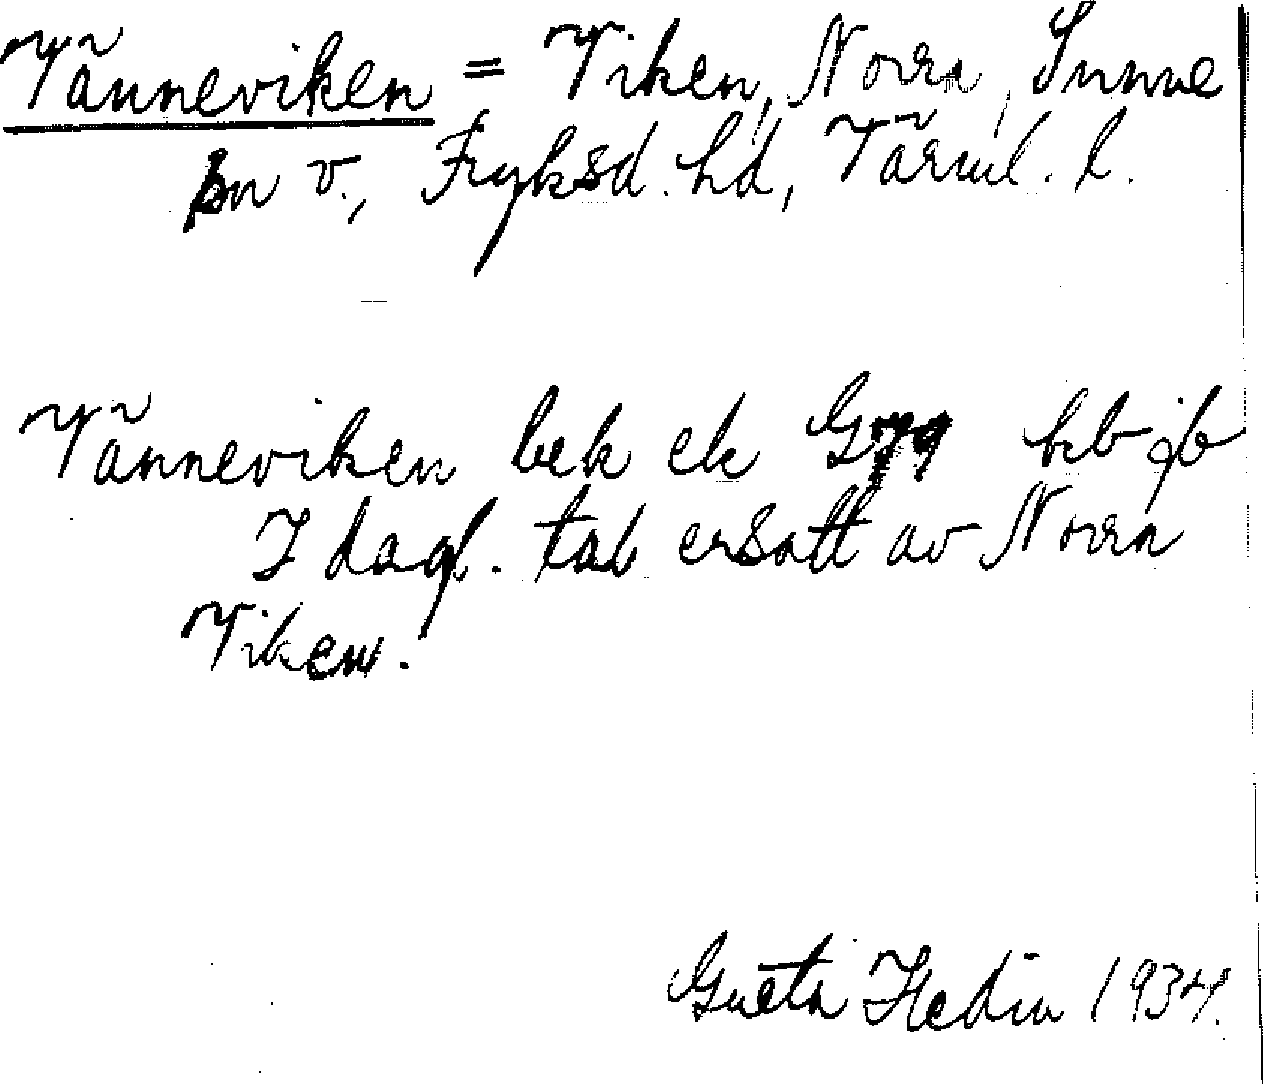 Vänneviken = Viken, Norra, Sunne
sn v., Fryksd. hd, Värml. l.
Vänneviken bek ek G79 kb jb
I dagl. tal ersatt av Norra
Viken.
Greta Hedin 1934.